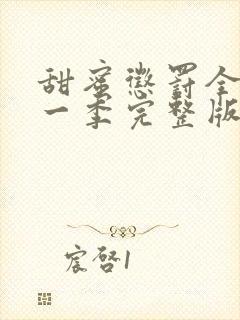 甜蜜惩罚全
一季完整版
宸启1